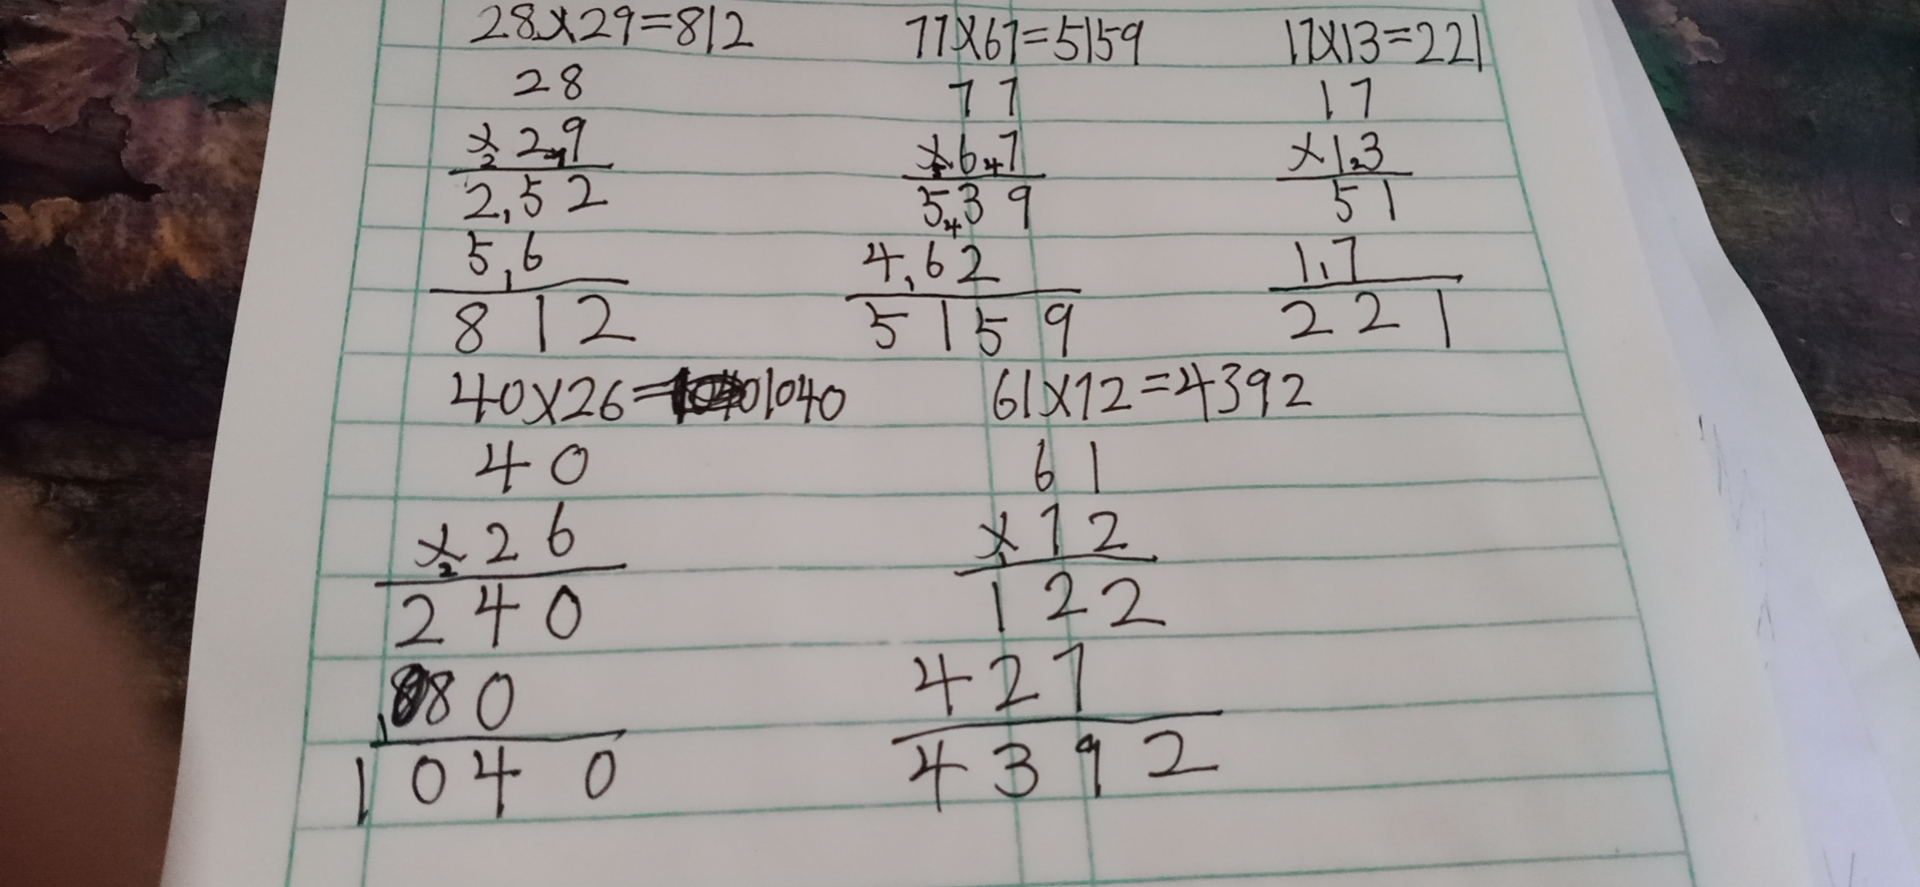 28×29=812
28
×29
252
56
812
77×67=5159
77
×67
539
462
5159
17×13=221
17
×13
51
17
221
40×26=1040
40
×26
240
80
1040
61×72=4392
61
×72
122
427
4392